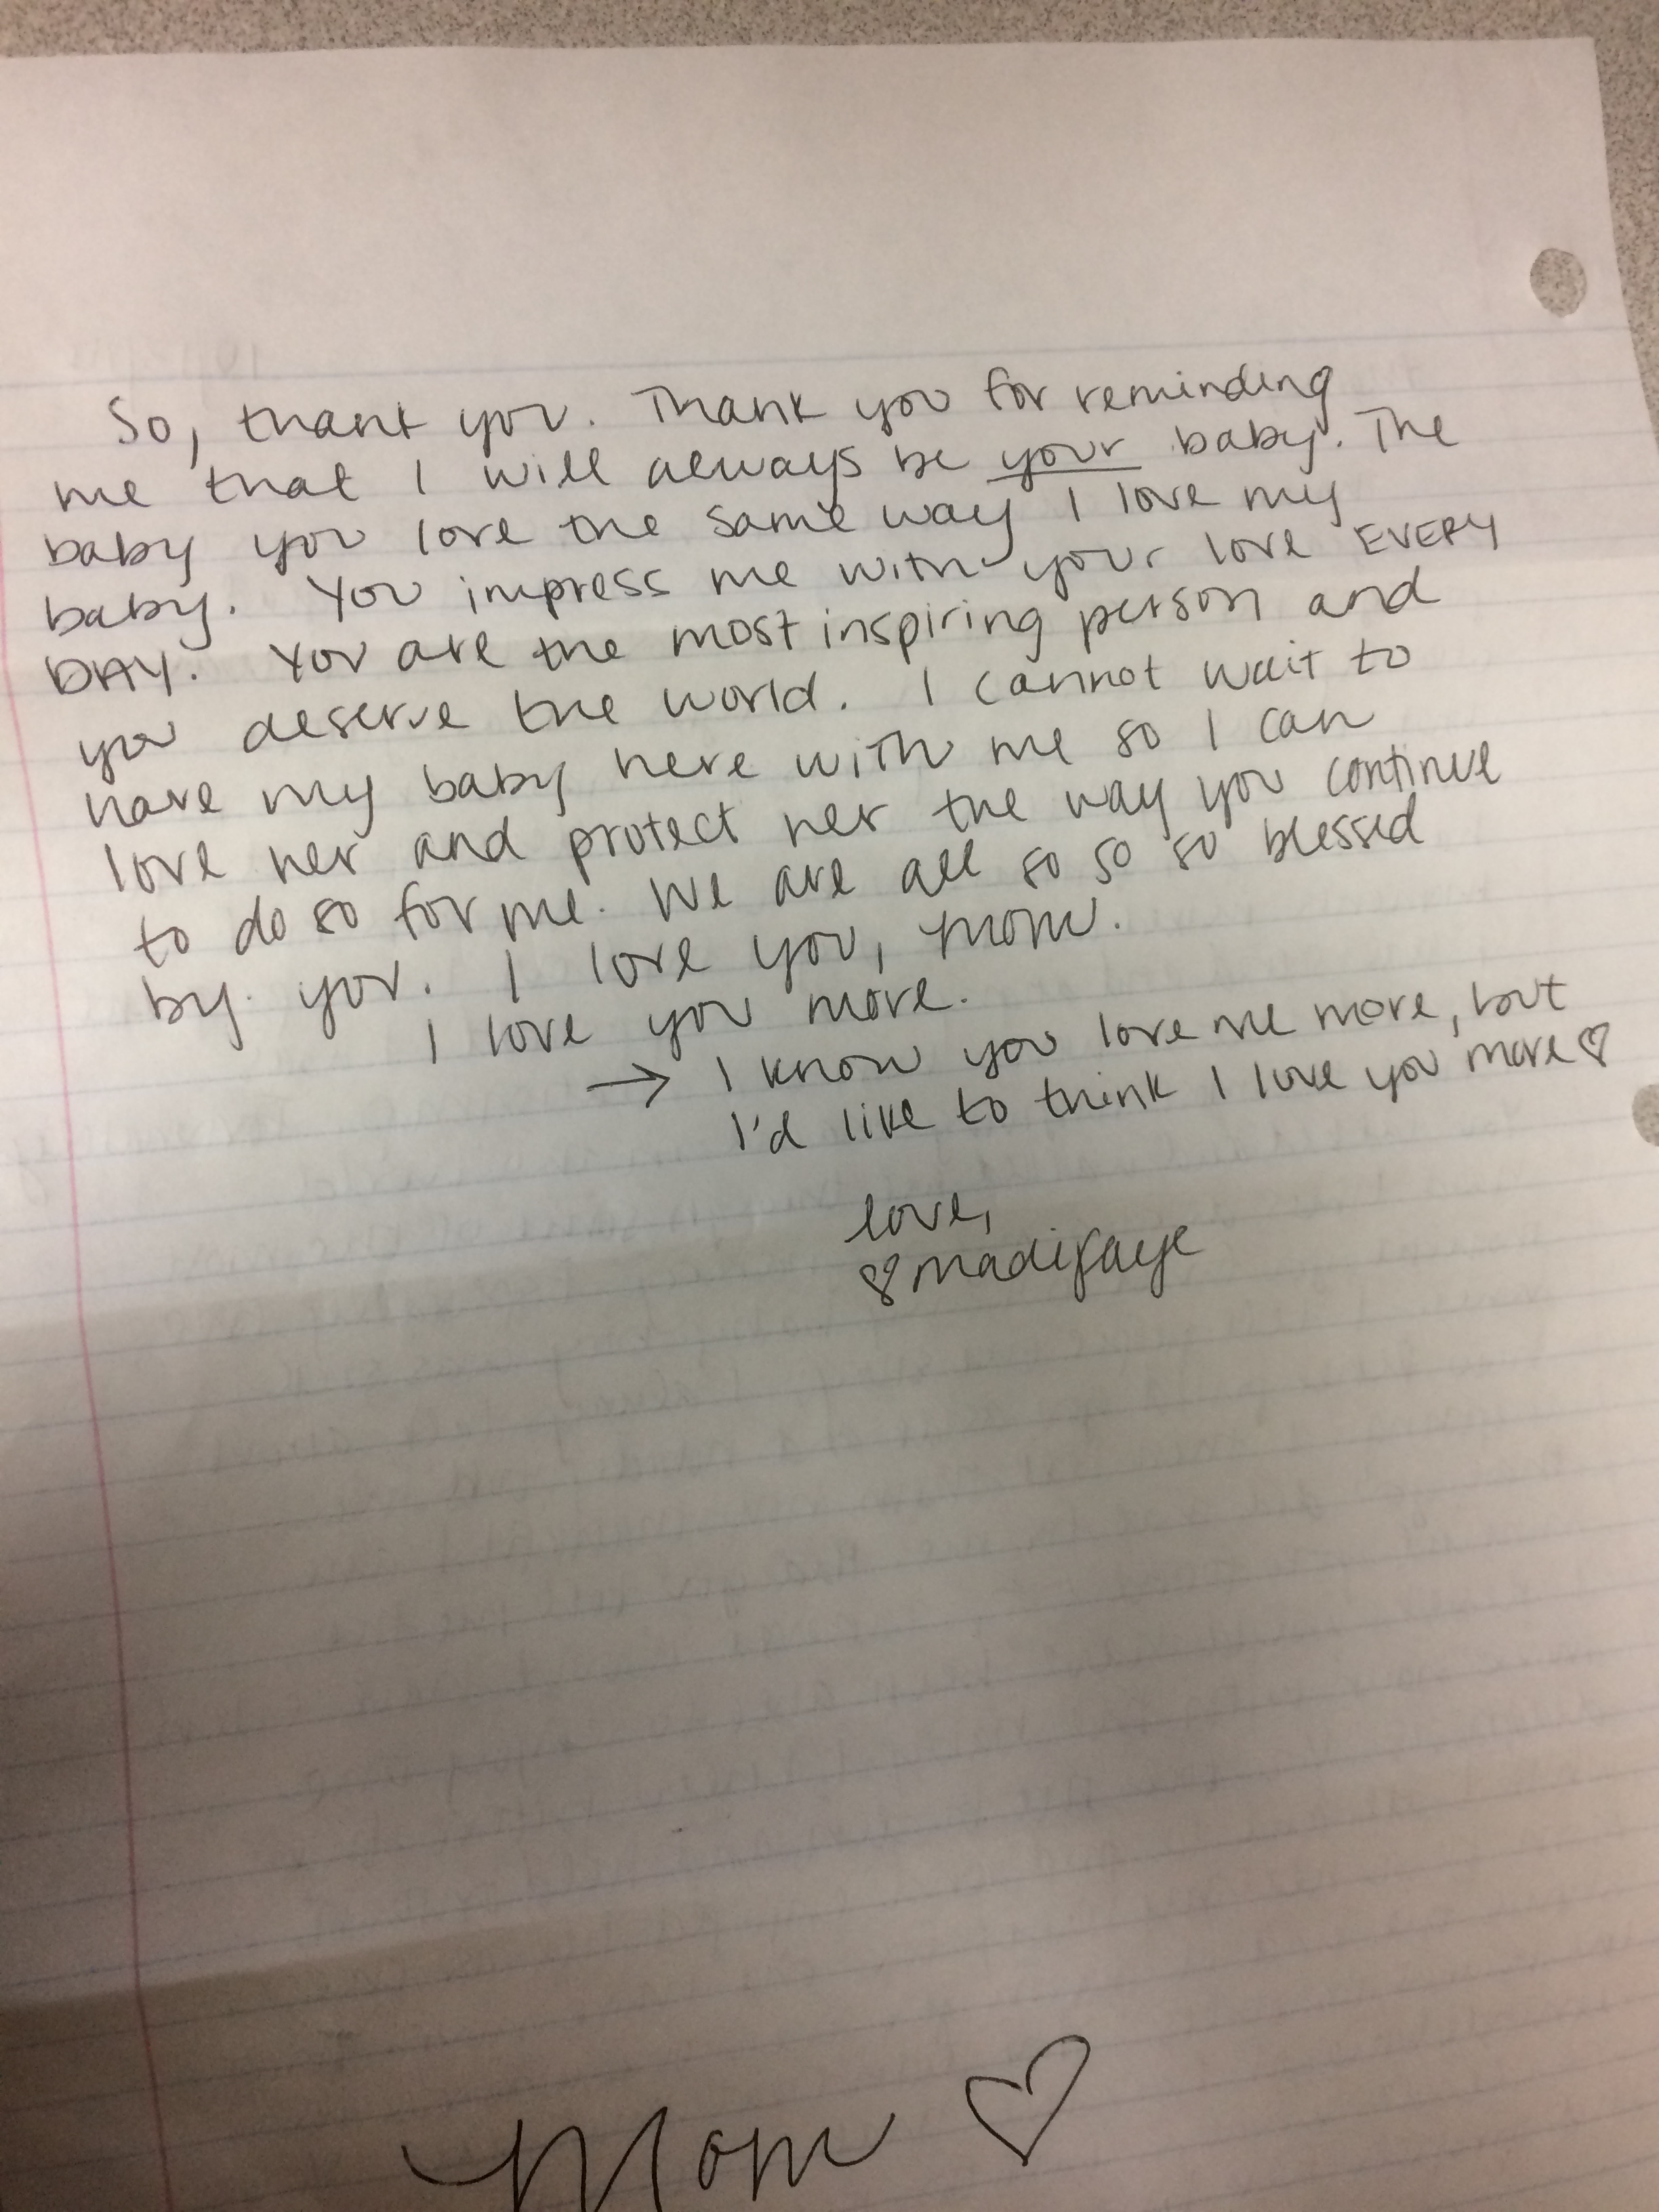 So, thank you. Thank you for reminding
me that I will always be your baby. The
baby you love the same way I love my
baby. You impress me with your love EVERY
DAY. You are the most inspiring person and
you deserve the world. I cannot wait to
have my baby here with me so I can
love her and protect her the way you continue
to do so for me. We are all so so so blessed
by you. I love you, mom.
I love you more.
→ I know you love me more, but
I'd like to think I love you more ♡
love,
♡ madifaye
Mom ♡